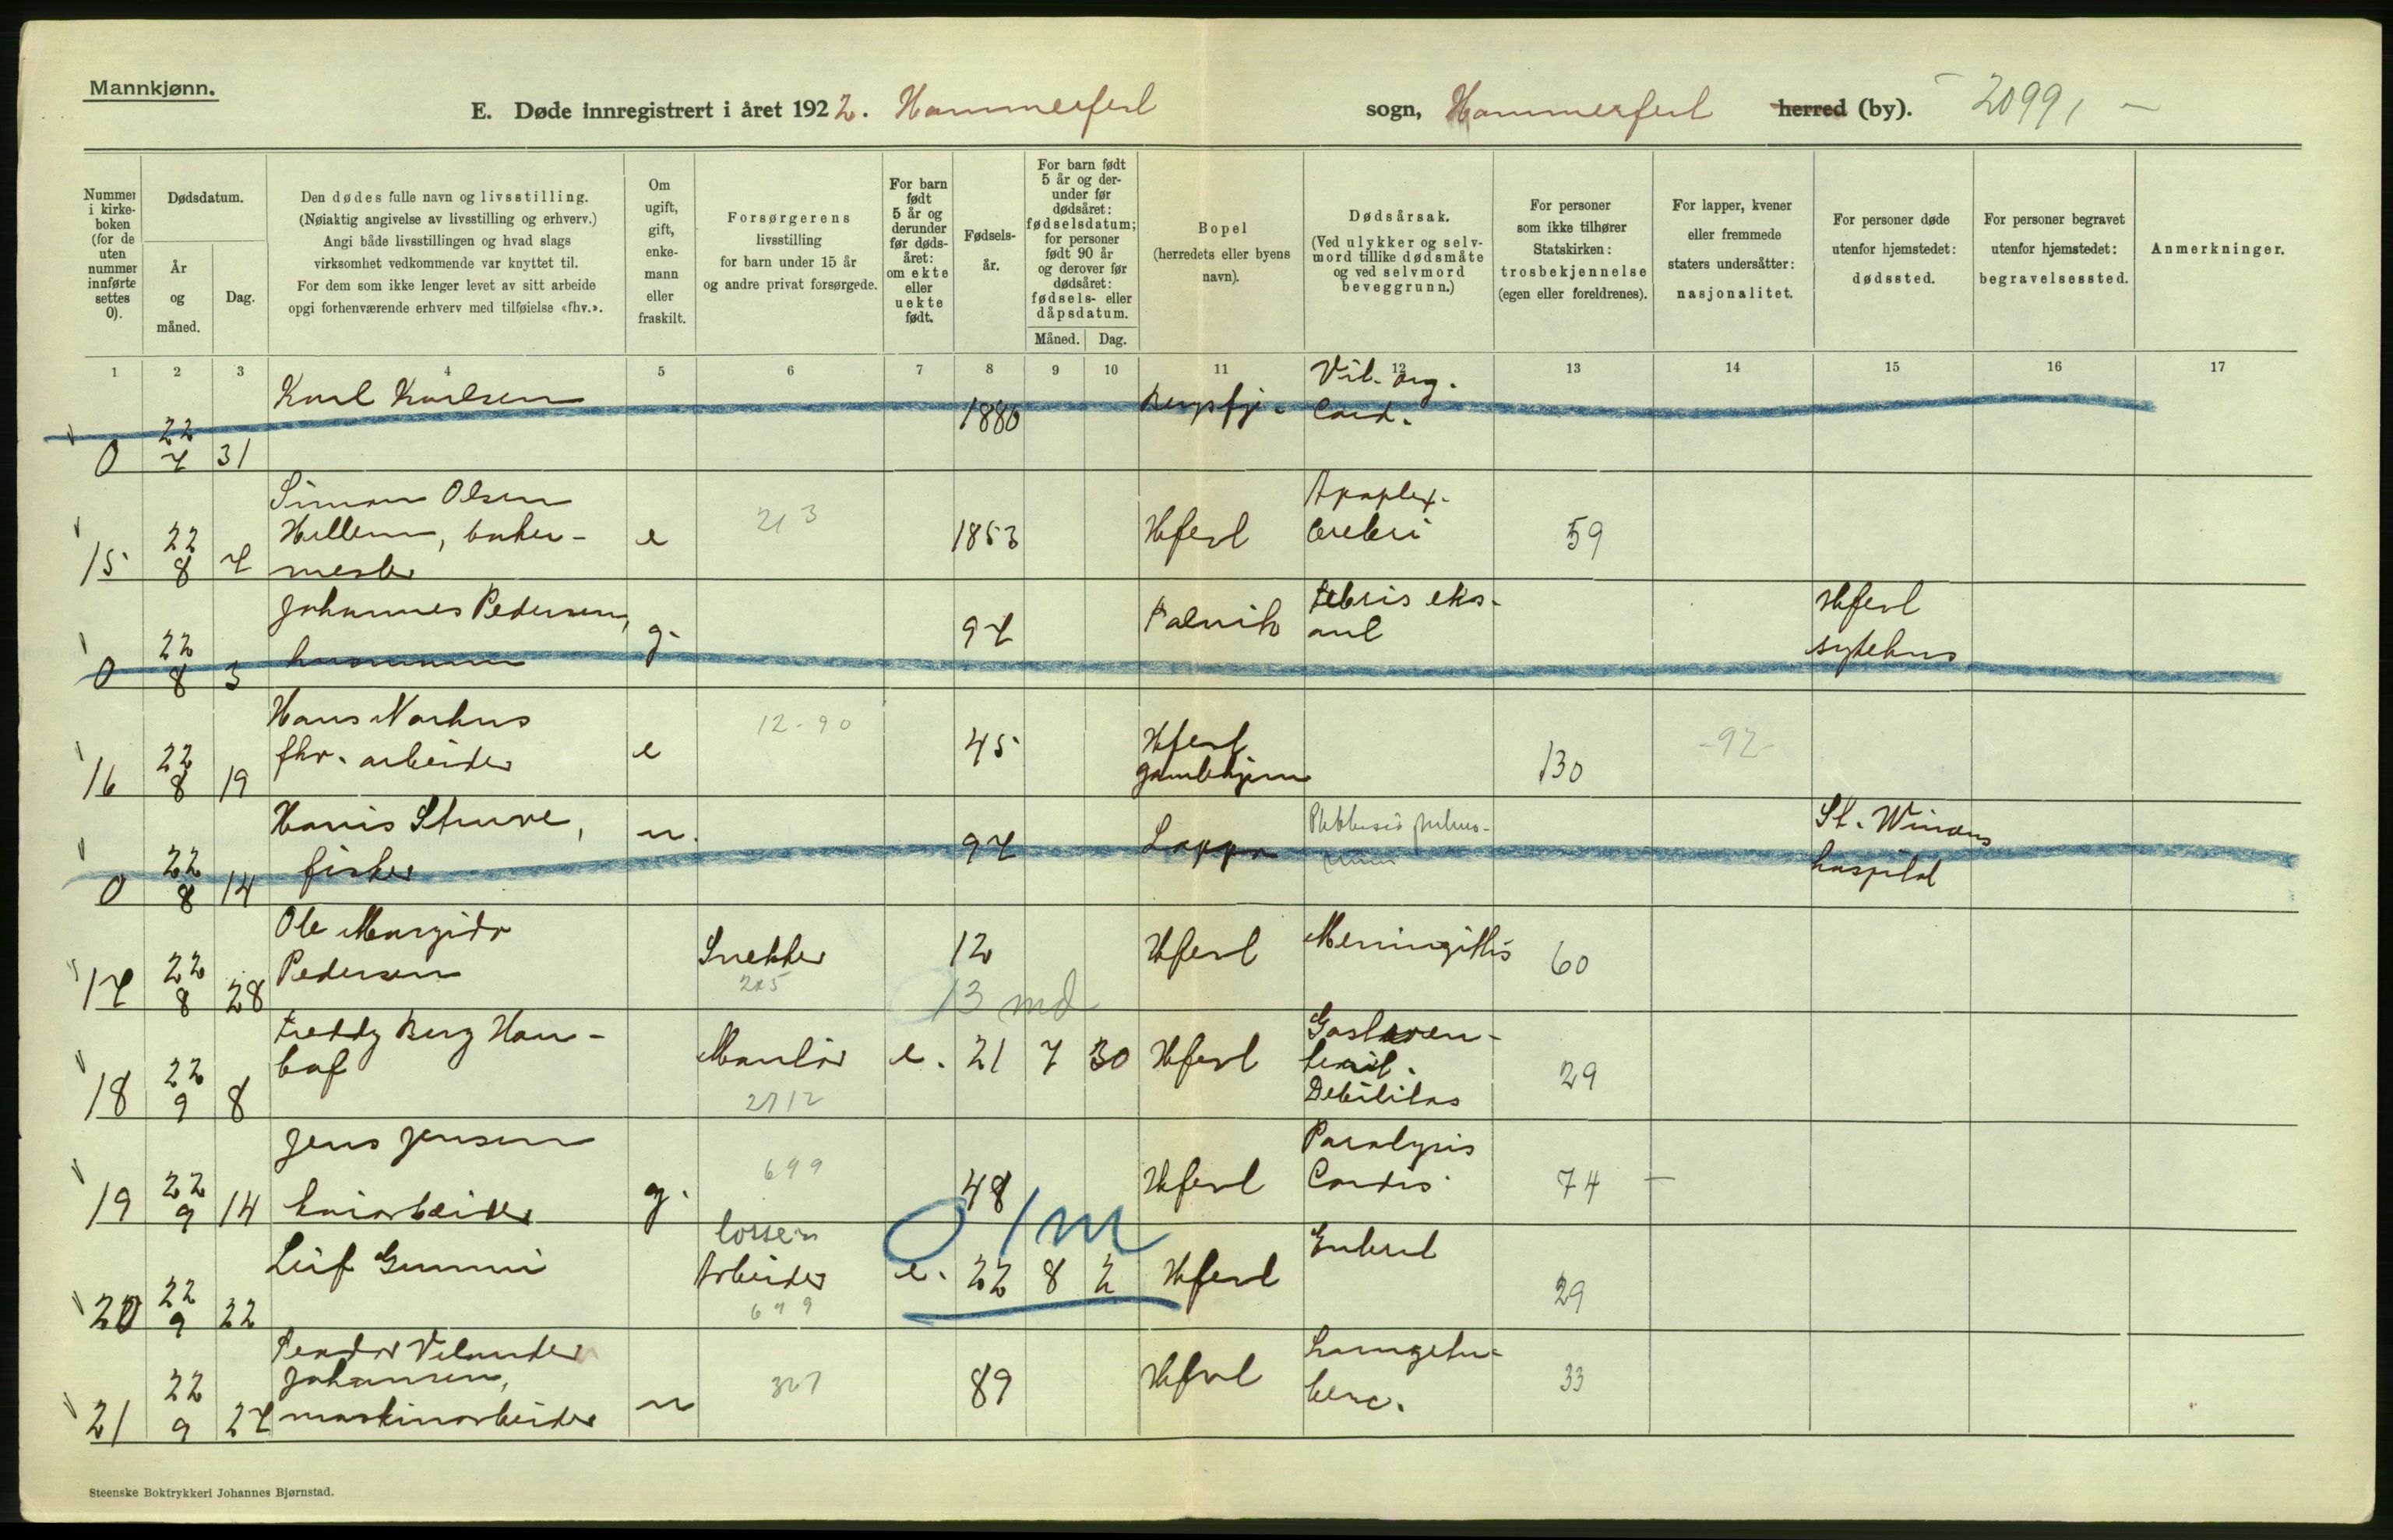 Mannkjønn.
E. Døde innregistrert i året 1922. Hammerfest sogn, Hammerfest herred (by). 2099,-
Nummer i kirkeboken (for de uten nummer innførte settes 0).
Dødsdatum.
År og måned.
Dag.
Den dødes fulle navn og livsstilling.
(Nøiaktig angivelse av livsstilling og erhverv.)
Angi både livsstillingen og hvad slags
virksomhet vedkommende var knyttet til.
For dem som ikke lenger levet av sitt arbeide
opgi forhenværende erhverv med tilføielse «fhv.».
Om ugift, gift, enkemann eller fraskilt.
Forsørgerens
livsstilling
for barn under 15 år
og andre privat forsørgede.
For barn født 5 år og derunder før dødsåret: om ekte eller uekte født.
Fødselsår.
For barn født 5 år og derunder før dødsåret: fødselsdatum; for personer født 90 år og derover før dødsåret: fødsels- eller dåpsdatum.
Måned. Dag.
Bopel
(herredets eller byens
navn).
Dødsårsak.
(Ved ulykker og selvmord tillike dødsmåte og ved selvmord beveggrunn.)
For personer
som ikke tilhører
Statskirken:
trosbekjennelse
(egen eller foreldrenes).
For lapper, kvener
eller fremmede
staters undersåtter:
nasjonalitet.
For personer døde
utenfor hjemstedet:
dødssted.
For personer begravet
utenfor hjemstedet:
begravelsessted.
Anmerkninger.
1 2 3 4 5 6 7 8 9 10 11 12 13 14 15 16 17
0 22 7 31 Karl Karlsen 1880 Bergsfj. Vit. org. Cord.
15 22 8 7 Simon Olsen
Hellem, baker-
mester e 213 1853 Hfest Apoplex.
Cerebri 59
0 22 8 3 Johannes Pedersen,
husmann g. 97 Talvik Febris eks-
ant Hfest
sykehus
16 22 8 19 Hans Narhus
fhv. arbeider e 12-90 45 Hfest
gamlehjem 130 -92-
0 22 8 14 Hanis Struve,
fisker u. 97 Loppa St. Vincens
hospital
17 22 8 28 Ole Margido
Pedersen Snekker
205 12 Hfest Meningitis 60
13 md
18 22 9 8 Freddy Berg Han-
Montør 2712 e. 21 7 30 Hfest Gastroen-
terit.
Debilitas 29
19 22 9 14 Jens Jensen
kaiarbeider g. 699 48 Hfest Paralysis
Cordis 74 -
0 1 m
20 22 9 22 Leif Gummi losse-
Arbeider
699 e. 22 8 2 Hfest Enterit 29
21 22 9 27 Peador Velander
Johansen,
maskinarbeider u 327 89 Hfest Lungetu-
berc. 33
Steenske Boktrykkeri Johannes Bjørnstad.